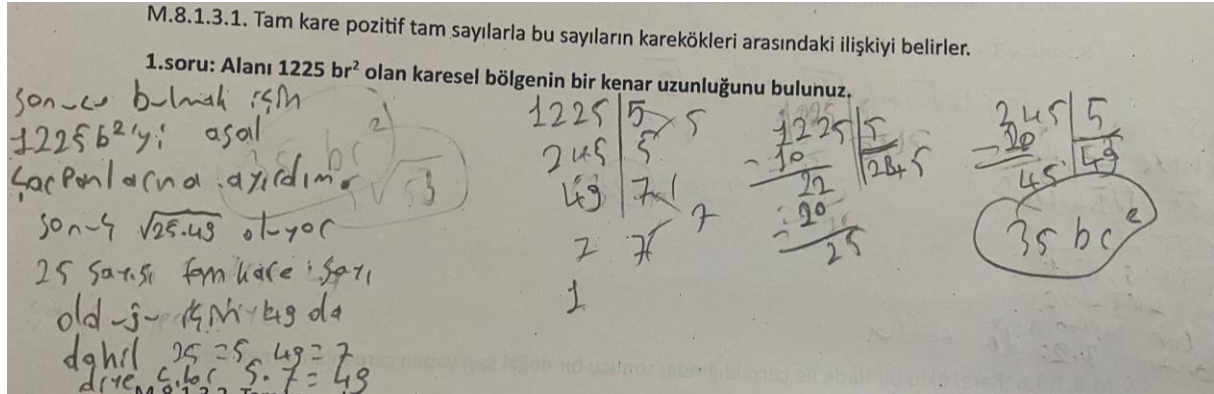 M.8.1.3.1. Tam kare pozitif tam sayılarla bu sayıların karekökleri arasındaki ilişkiyi belirler.
1.soru: Alanı 1225 br² olan karesel bölgenin bir kenar uzunluğunu bulunuz.
sonucu bulmak için
1225 b²'yi asal
çarpanlarına ayırdım.
sonuç √25.49 oluyor
25 sayısı tam kare sayı
olduğu için 49 da
dahil 25=5 49=7
diye çıkar 5.7=49
1225 | 5
245 | 5 5
49 | 7
7 7 7
1
1225 | 5
- 10 245
22
- 20
25
245 | 5
- 20 49
45
35 bc²